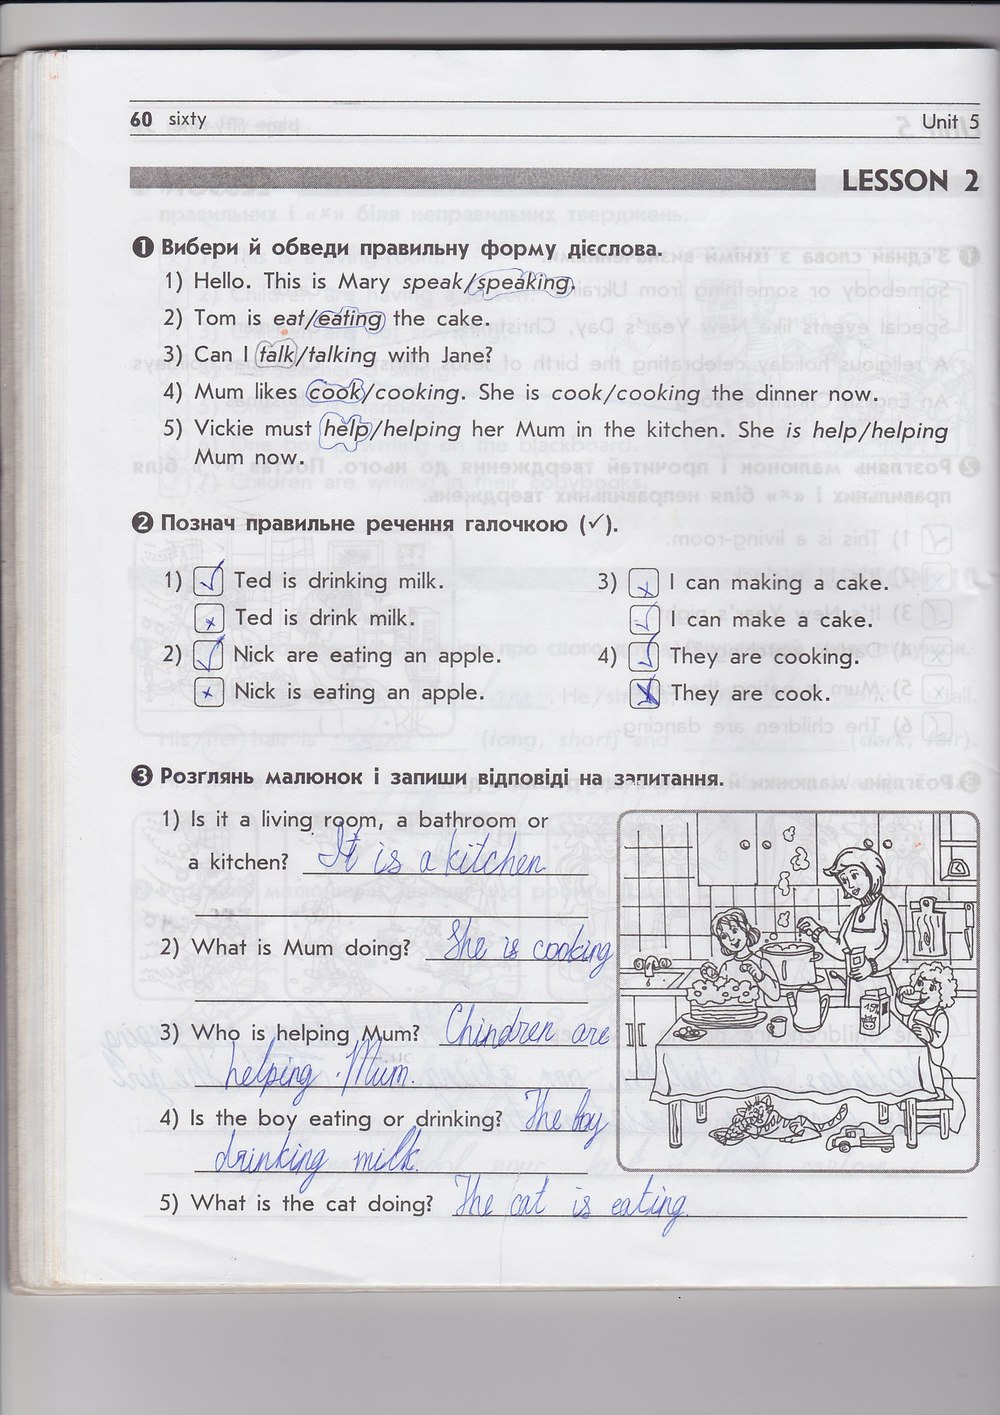 60 sixty Unit 5
LESSON 2
1 Вибери й обведи правильну форму дієслова.
1) Hello. This is Mary speak/speaking.
2) Tom is eat/eating the cake.
3) Can I talk/talking with Jane?
4) Mum likes cook/cooking. She is cook/cooking the dinner now.
5) Vickie must help/helping her Mum in the kitchen. She is help/helping
Mum now.
2 Познач правильне речення галочкою (✓).
1) ✓ Ted is drinking milk.
x Ted is drink milk.
2) ✓ Nick are eating an apple.
x Nick is eating an apple.
3) x I can making a cake.
✓ I can make a cake.
4) ✓ They are cooking.
x They are cook.
3 Розглянь малюнок і запиши відповіді на запитання.
1) Is it a living room, a bathroom or
a kitchen? It is a kitchen.
2) What is Mum doing? She is cooking
3) Who is helping Mum? Chindren are
helping Mum.
4) Is the boy eating or drinking? The boy
drinking milk.
5) What is the cat doing? The cat is eating.